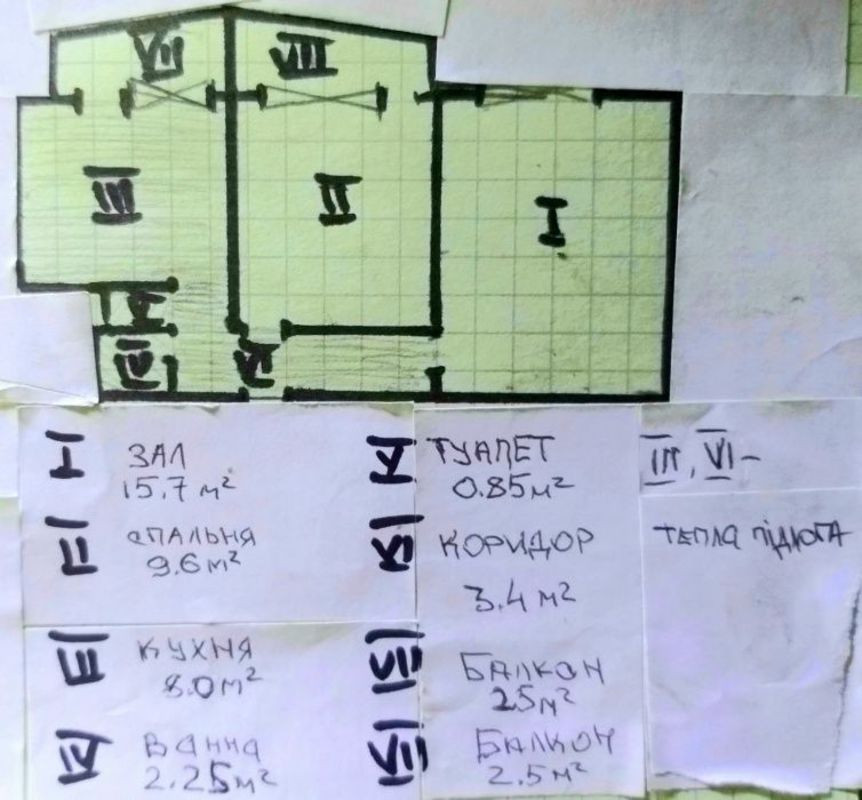 VII
VIII
III
II
I
V
IV
VI
I ЗАЛ
15.7 м²
II СПАЛЬНЯ
9.6 м²
III КУХНЯ
8.0 м²
IV ВАННА
2.25 м²
V ТУАЛЕТ
0.85 м²
VI КОРИДОР
3.4 м²
VII БАЛКОН
25 м²
VIII БАЛКОН
2.5 м²
III, VI –
ТЕПЛА ПІДЛОГА